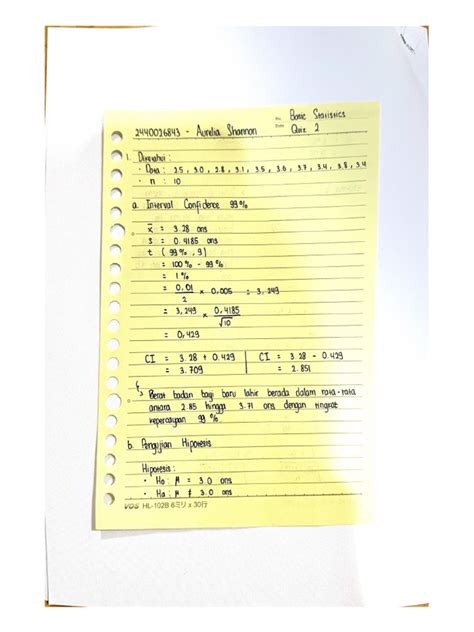 No. Basic Statistics
2440026843 - Aurelia Shannon Date Quiz 2
1. Diketahui :
• Data : 2.5, 3.0, 2.8, 3.1, 3.5, 3.6, 3.7, 3.4, 3.8, 3.4
• n : 10
a. Interval Confidence 99%
x̄ = 3.28 ons
s = 0.4185 ons
t ( 99%, 9)
= 100% - 99%
= 1%
= 0,01/2 x 0,005 = 3,249
= 3,249 x 0,4185/√10
= 0,429
CI = 3.28 + 0.429 CI = 3.28 - 0.429
= 3.709 = 2.851
↳ Berat badan bayi baru lahir berada dalam rata-rata
antara 2.85 hingga 3.71 ons dengan tingkat
kepercayaan 99%
b. Pengujian Hipotesis
Hipotesis :
• Ho : μ = 3.0 ons
• Ha : μ ≠ 3.0 ons
VOS HL-102B 6ミリ x 30行